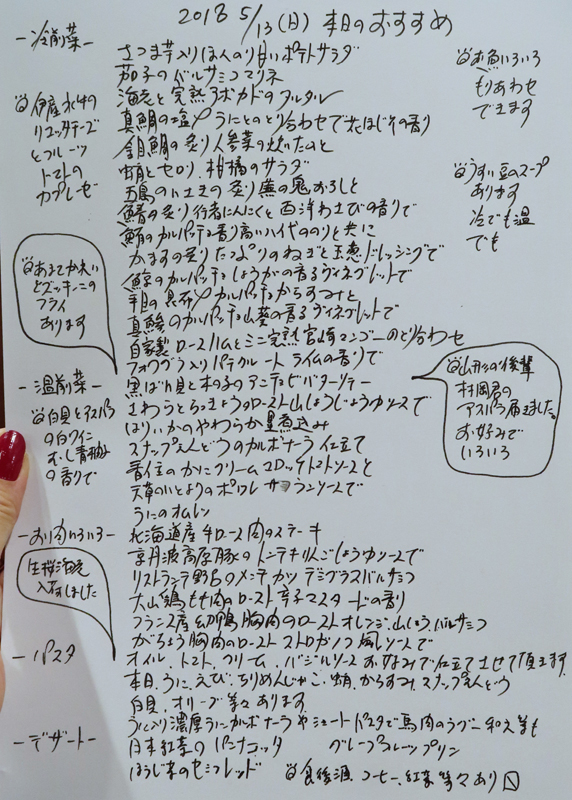 2018 5/13(日) 本日のおすすめ
－冷前菜－
さつま芋入りほんのり甘いポテトサラダ
茄子のバルサミコマリネ
海老と完熟アボカドのタルタル
真鯛の塩〆うにとのとり合わせで花ほじその香り
金目鯛の炙り人参菜の
蛸とセロリ、柑橘のサラダ
五島の
の炙り
の鬼おろしと
鰆の炙り行者にんにくと西洋わさびの香りで
鮪のカルパッチョ香り高い八代ののりと共に
かますの炙りたっぷりのねぎと玉葱ドレッシングで
のカルパッチョしょうがの香るヴィネグレットで
平目の昆布〆カルパッチョからすみと
真鯵のカルパッチョ山葵の香るヴィネグレットで
自家製ロースハムとミニ完熟宮崎マンゴーのとり合わせ
フォワグラ入りパテクルート ライムの香りで
伊産水牛の
リコッタチーズ
とフルーツ
トマトの
カプレーゼ
あまてかれい
とズッキーニの
フライ
あります
お魚いろいろ
もりあわせ
できます
うすい豆のスープ
あります
冷でも温
でも
－温前菜－
黒ばい貝と木の子のアンチョビバターソテー
さわらとらっきょうのロースト山しょうじょうゆソースで
はりいかのやわらか墨煮込み
スナップえんどうのカルボナーラ仕立て
香住のかにクリームコロッケトマトソースと
天草のいとよりのポワレ サフランソースで
うにのオムレツ
白貝とアスパラ
の白ワイン
むし青柚子
の香りで
山形の後輩
村岡君の
アスパラ届きました。
お好みで
いろいろ
－お肉いろいろ－
北海道産牛ロース肉のステーキ
京丹波高原豚のトンテキりんごしょうゆソースで
リストランテ野呂のメンチカツ デミグラスバルサミコ
大山鶏もも肉のロースト辛子マスタードの香り
フランス産幼鴨胸肉のローストオレンジ、山しょう、バルサミコ
がちょう胸肉のロースト ストロガノフ風ソースで
生桜海老
入荷しました
－パスタ
オイル、トマト、クリーム、バジルソースお好みで仕立てさせて頂ます
本日、うに、えび、ちりめんじゃこ、蛸、からすみ、スナップえんどう
白貝、オリーブ等々あります
うに入り濃厚うにカルボナーラやショートパスタで馬肉のラグー和え等も
－デザート－
日本紅茶のパンナコッタ　グレープフルーツプリン
ほうじ茶のセミフレッド　食後酒、コーヒー、紅茶等々あり〼